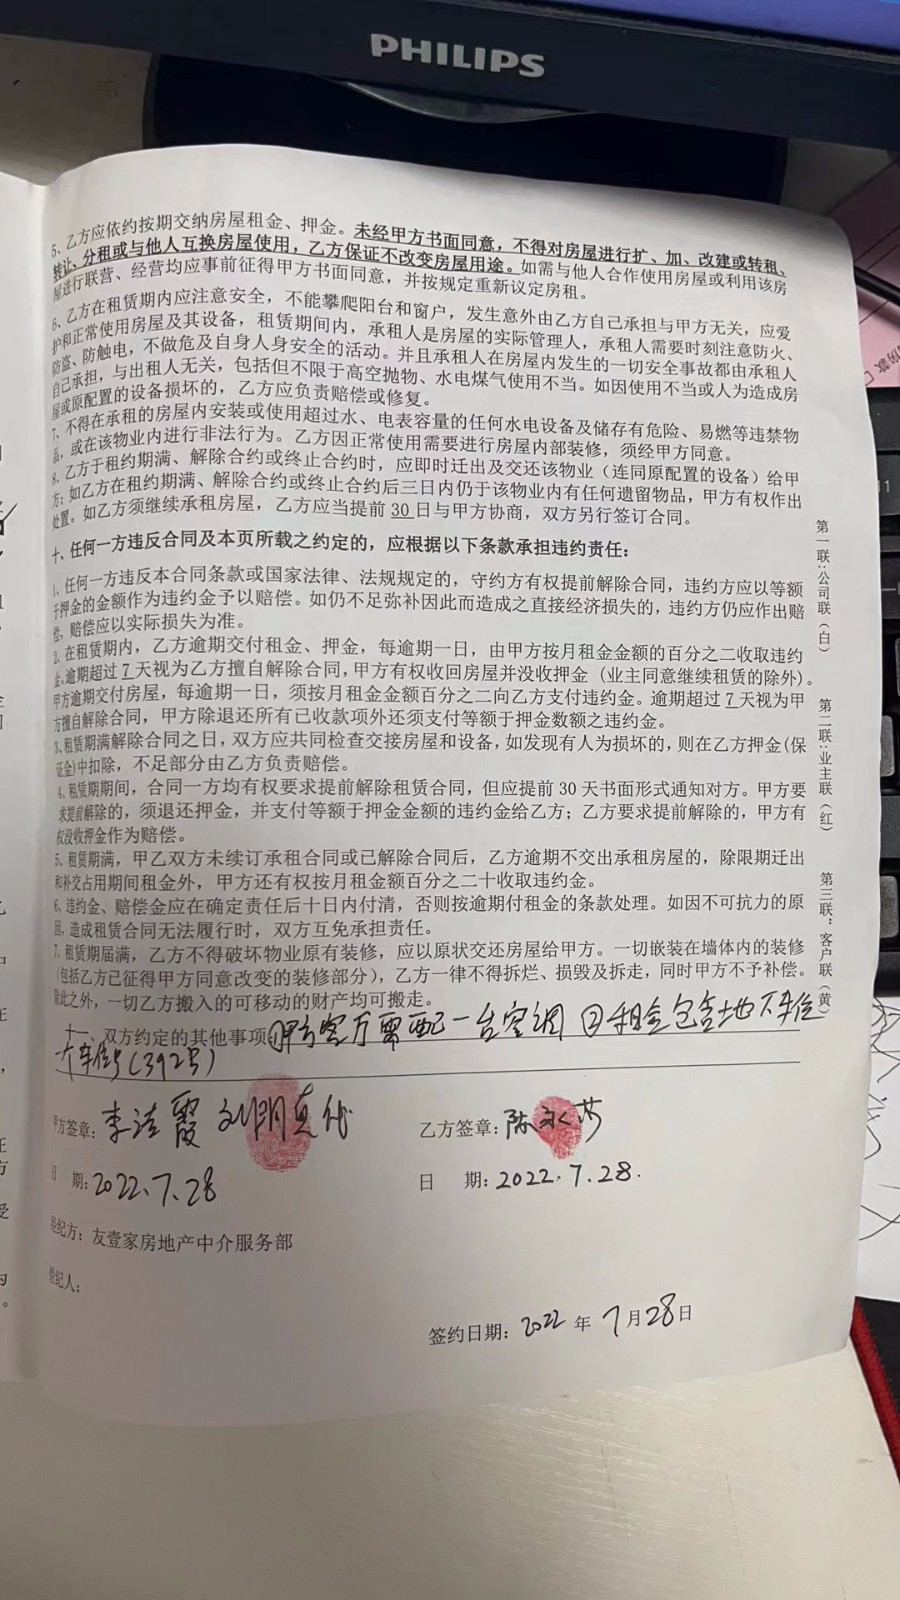 PHILIPS
5、乙方应依约按期交纳房屋租金、押金。未经甲方书面同意，不得对房屋进行扩、加、改建或转租、
转让、分租或与他人互换房屋使用，乙方保证不改变房屋用途。如需与他人合作使用房屋或利用该房
屋进行联营、经营均应事前征得甲方书面同意，并按规定重新议定房租。
6、乙方在租赁期内应注意安全，不能攀爬阳台和窗户，发生意外由乙方自己承担与甲方无关，应爱
护和正常使用房屋及其设备，租赁期间内，承租人是房屋的实际管理人，承租人需要时刻注意防火、
防盗、防触电，不做危及自身人身安全的活动。并且承租人在房屋内发生的一切安全事故都由承租人
自己承担，与出租人无关，包括但不限于高空抛物、水电煤气使用不当。如因使用不当或人为造成房
屋或原配置的设备损坏的，乙方应负责赔偿或修复。
7、不得在承租的房屋内安装或使用超过水、电表容量的任何水电设备及储存有危险、易燃等违禁物
品，或在该物业内进行非法行为。乙方因正常使用需要进行房屋内部装修，须经甲方同意。
8、乙方于租约期满、解除合约或终止合约时，应即时迁出及交还该物业（连同原配置的设备）给甲
方；如乙方在租约期满、解除合约或终止合约后三日内仍于该物业内有任何遗留物品，甲方有权作出
处置。如乙方须继续承租房屋，乙方应当提前30日与甲方协商，双方另行签订合同。
十、任何一方违反合同及本页所载之约定的，应根据以下条款承担违约责任：
1、任何一方违反本合同条款或国家法律、法规规定的，守约方有权提前解除合同，违约方应以等额
于押金的金额作为违约金予以赔偿。如仍不足弥补因此而造成之直接经济损失的，违约方仍应作出赔
偿，赔偿应以实际损失为准。
2、在租赁期内，乙方逾期交付租金、押金，每逾期一日，由甲方按月租金金额的百分之二收取违约
金。逾期超过7天视为乙方擅自解除合同，甲方有权收回房屋并没收押金（业主同意继续租赁的除外）。
甲方逾期交付房屋，每逾期一日，须按月租金金额百分之二向乙方支付违约金。逾期超过7天视为甲
方擅自解除合同，甲方除退还所有已收款项外还须支付等额于押金数额之违约金。
3、租赁期满解除合同之日，双方应共同检查交接房屋和设备，如发现有人为损坏的，则在乙方押金(保
证金)中扣除，不足部分由乙方负责赔偿。
4、租赁期期间，合同一方均有权要求提前解除租赁合同，但应提前30天书面形式通知对方。甲方要
求提前解除的，须退还押金，并支付等额于押金金额的违约金给乙方；乙方要求提前解除的，甲方有
权没收押金作为赔偿。
5、租赁期满，甲乙双方未续订承租合同或已解除合同后，乙方逾期不交出承租房屋的，除限期迁出
和补交占用期间租金外，甲方还有权按月租金额百分之二十收取违约金。
6、违约金、赔偿金应在确定责任后十日内付清，否则按逾期付租金的条款处理。如因不可抗力的原
因，造成租赁合同无法履行时，双方互免承担责任。
7、租赁期届满，乙方不得破坏物业原有装修，应以原状交还房屋给甲方。一切嵌装在墙体内的装修
（包括乙方已征得甲方同意改变的装修部分），乙方一律不得拆烂、损毁及拆走，同时甲方不予补偿。
除此之外，一切乙方搬入的可移动的财产均可搬走。
十一、双方约定的其他事项①甲方客厅需配一台空调 ②租金包含地下车位
一个车位(392号)
甲方签章：李洁霞 刘阴真代
乙方签章：陈永芬
日 期：2022.7.28
日 期：2022.7.28.
经纪方：友壹家房地产中介服务部
经纪人：
签约日期：2022年7月28日
第一联：公司联（白）
第二联：业主联（红）
第三联：客户联（黄）